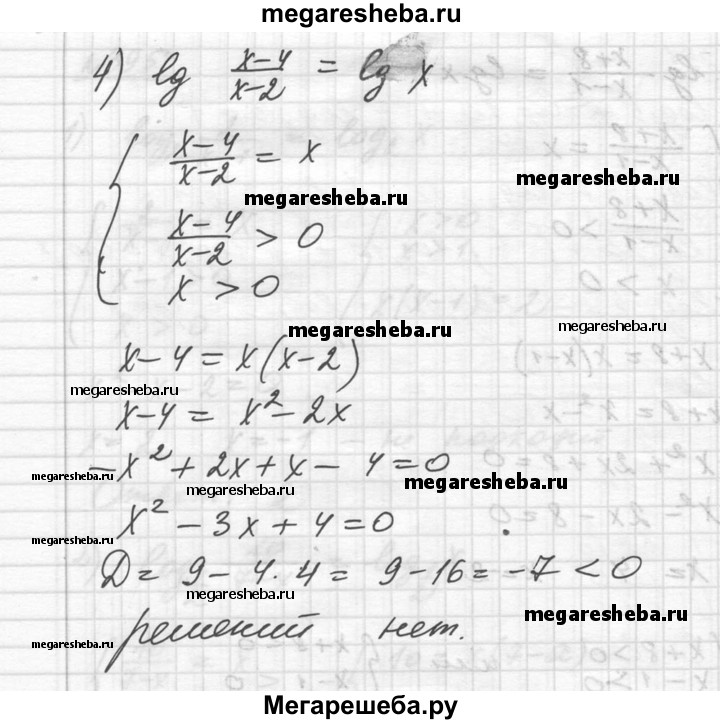 megaresheba.ru
4) lg (x-4)/(x-2) = lg x
{ (x-4)/(x-2) = x
megaresheba.ru
megaresheba.ru
(x-4)/(x-2) > 0
x > 0
megaresheba.ru
megaresheba.ru
x-4 = x(x-2)
megaresheba.ru
x-4 = x²-2x
-x²+2x+x-4=0
megaresheba.ru
megaresheba.ru
megaresheba.ru
x²-3x+4=0
megaresheba.ru
D= 9-4·4= 9-16=-7<0
megaresheba.ru
megaresheba.ru
решений нет.
megaresheba.ru
Мегарешеба.ру